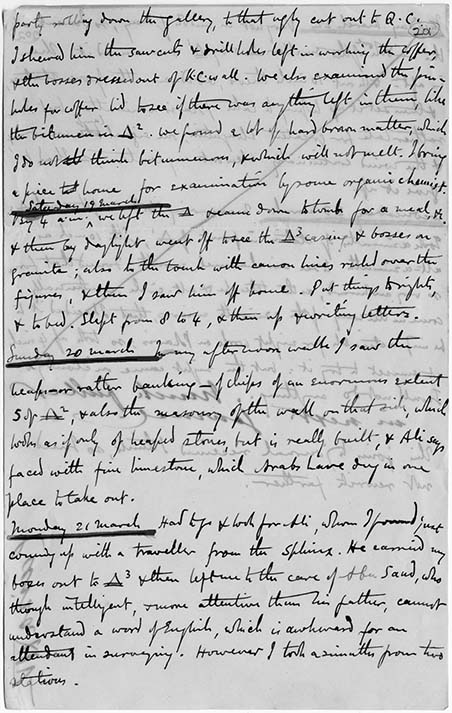 party rolling down the gallery, to that ugly cut out to Q.C.
20
I shewed him the sawcuts & drill holes left in working the coffer,
& the bosses dressed out of K.C. wall. We also examined the pin-
holes for coffer lid to see if there was anything left in them, like
the bitumen in Δ². We found a lot of hard brown matter, which
I do not think bitumenous, & which will not melt. I bring
a piece home for examination by some organic chemist.
Saturday 19 March
By 4 a.m. we left the Δ & came down to tomb for a meal, &c.
& then by daylight went off to see the Δ³ casing & bosses on
granite; also to the tomb with canon lines ruled over the
figures, & then I saw him off home. Put things to rights,
& to bed. Slept from 8 to 4, & then up & writing letters.
Sunday 20 March In my afternoon walk I saw the
heaps – or rather banking – of chips of an enormous extent
S of Δ², & also the masonry of the wall on that side, which
looks as if only of heaped stones, but is really built, & Ali says
faced with fine limestone, which Arabs have dug in one
place to take out.
Monday 21 March Had to go & look for Ali, whom I found just
coming up with a traveller from the Sphinx. He carried my
boxes out to Δ³ & then left me to the care of Abu Saud, who
though intelligent, & more attentive than his father, cannot
understand a word of English, which is awkward for an
attendant in surveying. However I took azimuths from two
stations.